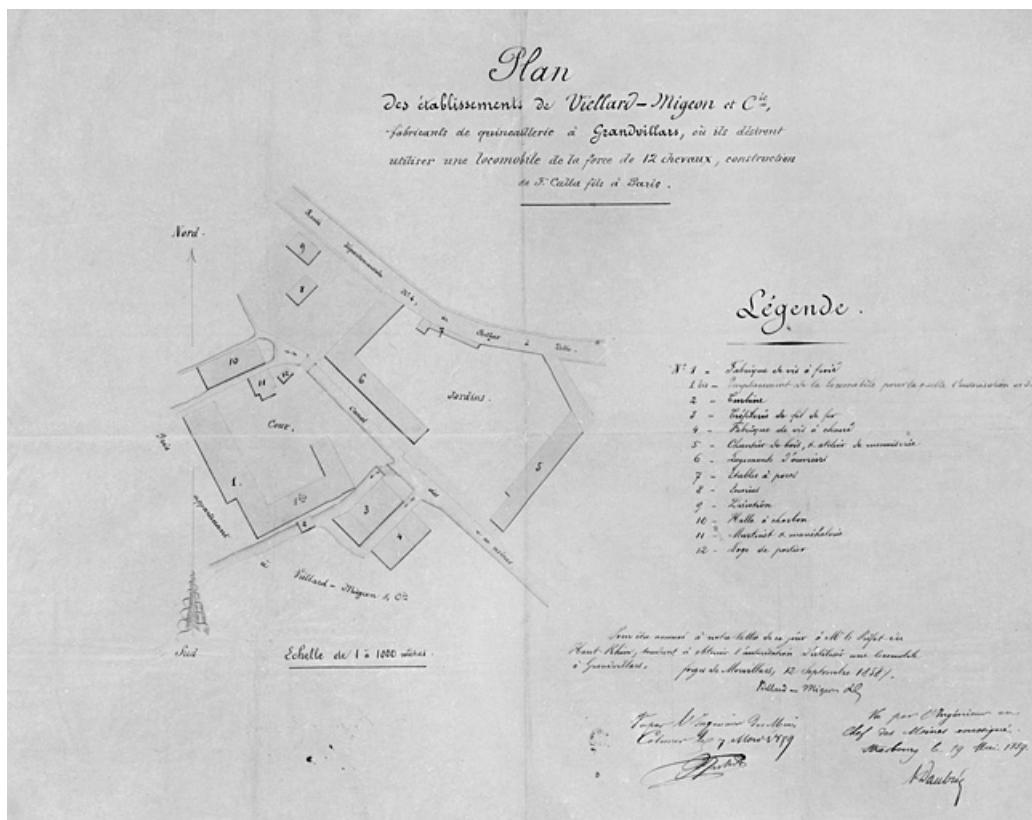 Plan
Des établissements de Viellard-Migeon et Cie,
fabricants de quincaillerie à Grandvillars, où ils désirent
utiliser une locomobile de la force de 12 chevaux, construction
de F. Calla fils à Paris.
Nord.
Route
départementale
No 4,
de
Belfort
à
Delle.
9
8
7
10
11
12
6
Jardins.
Cour.
Canal
des
usines
5
1.
1 bis
2
3
4
Prés
appartenant
à
Viellard-Migeon & Cie
Sud
Echelle de 1 à 1000 mètres.
Légende.
No 1 - Fabrique de vis à froid
1 bis - Emplacement de la locomobile pour laquelle l'autorisation est
2 - Turbine
3 - Tréfilerie de fil de fer
4 - Fabrique de vis à chaud
5 - Chantier de bois, & atelier de menuiserie
6 - Logements d'ouvriers
7 - Etables à porcs
8 - Ecuries
9 - 
10 - Halle à charbon
11 - Martinet & maréchalerie
12 - Loge de portier
Pour être annexé à notre lettre de ce jour à Mr le Préfet du
Haut-Rhin, tendant à obtenir l'autorisation d'utiliser une locomobile
à Grandvillars. forges de Morvillars, 12 Septembre 1858.
Viellard-Migeon &Cie
Vu par l'Ingénieur des Mines
Colmar le 7 Mars 1859
Vu par l'Ingénieur en
Chef des Mines soussigné
Strasbourg le 19 Mai 1859.
Daubrée